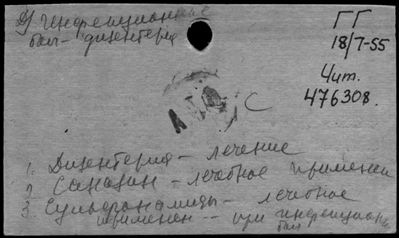 инфекционные
бол- дизентерия
ГГ
18/7-55
Чит.
476308.
С
1. Дизентерия - лечение
2 - лечебное применен
3 Сульфонамиды - лечебное
применен - при инфекционн
бол